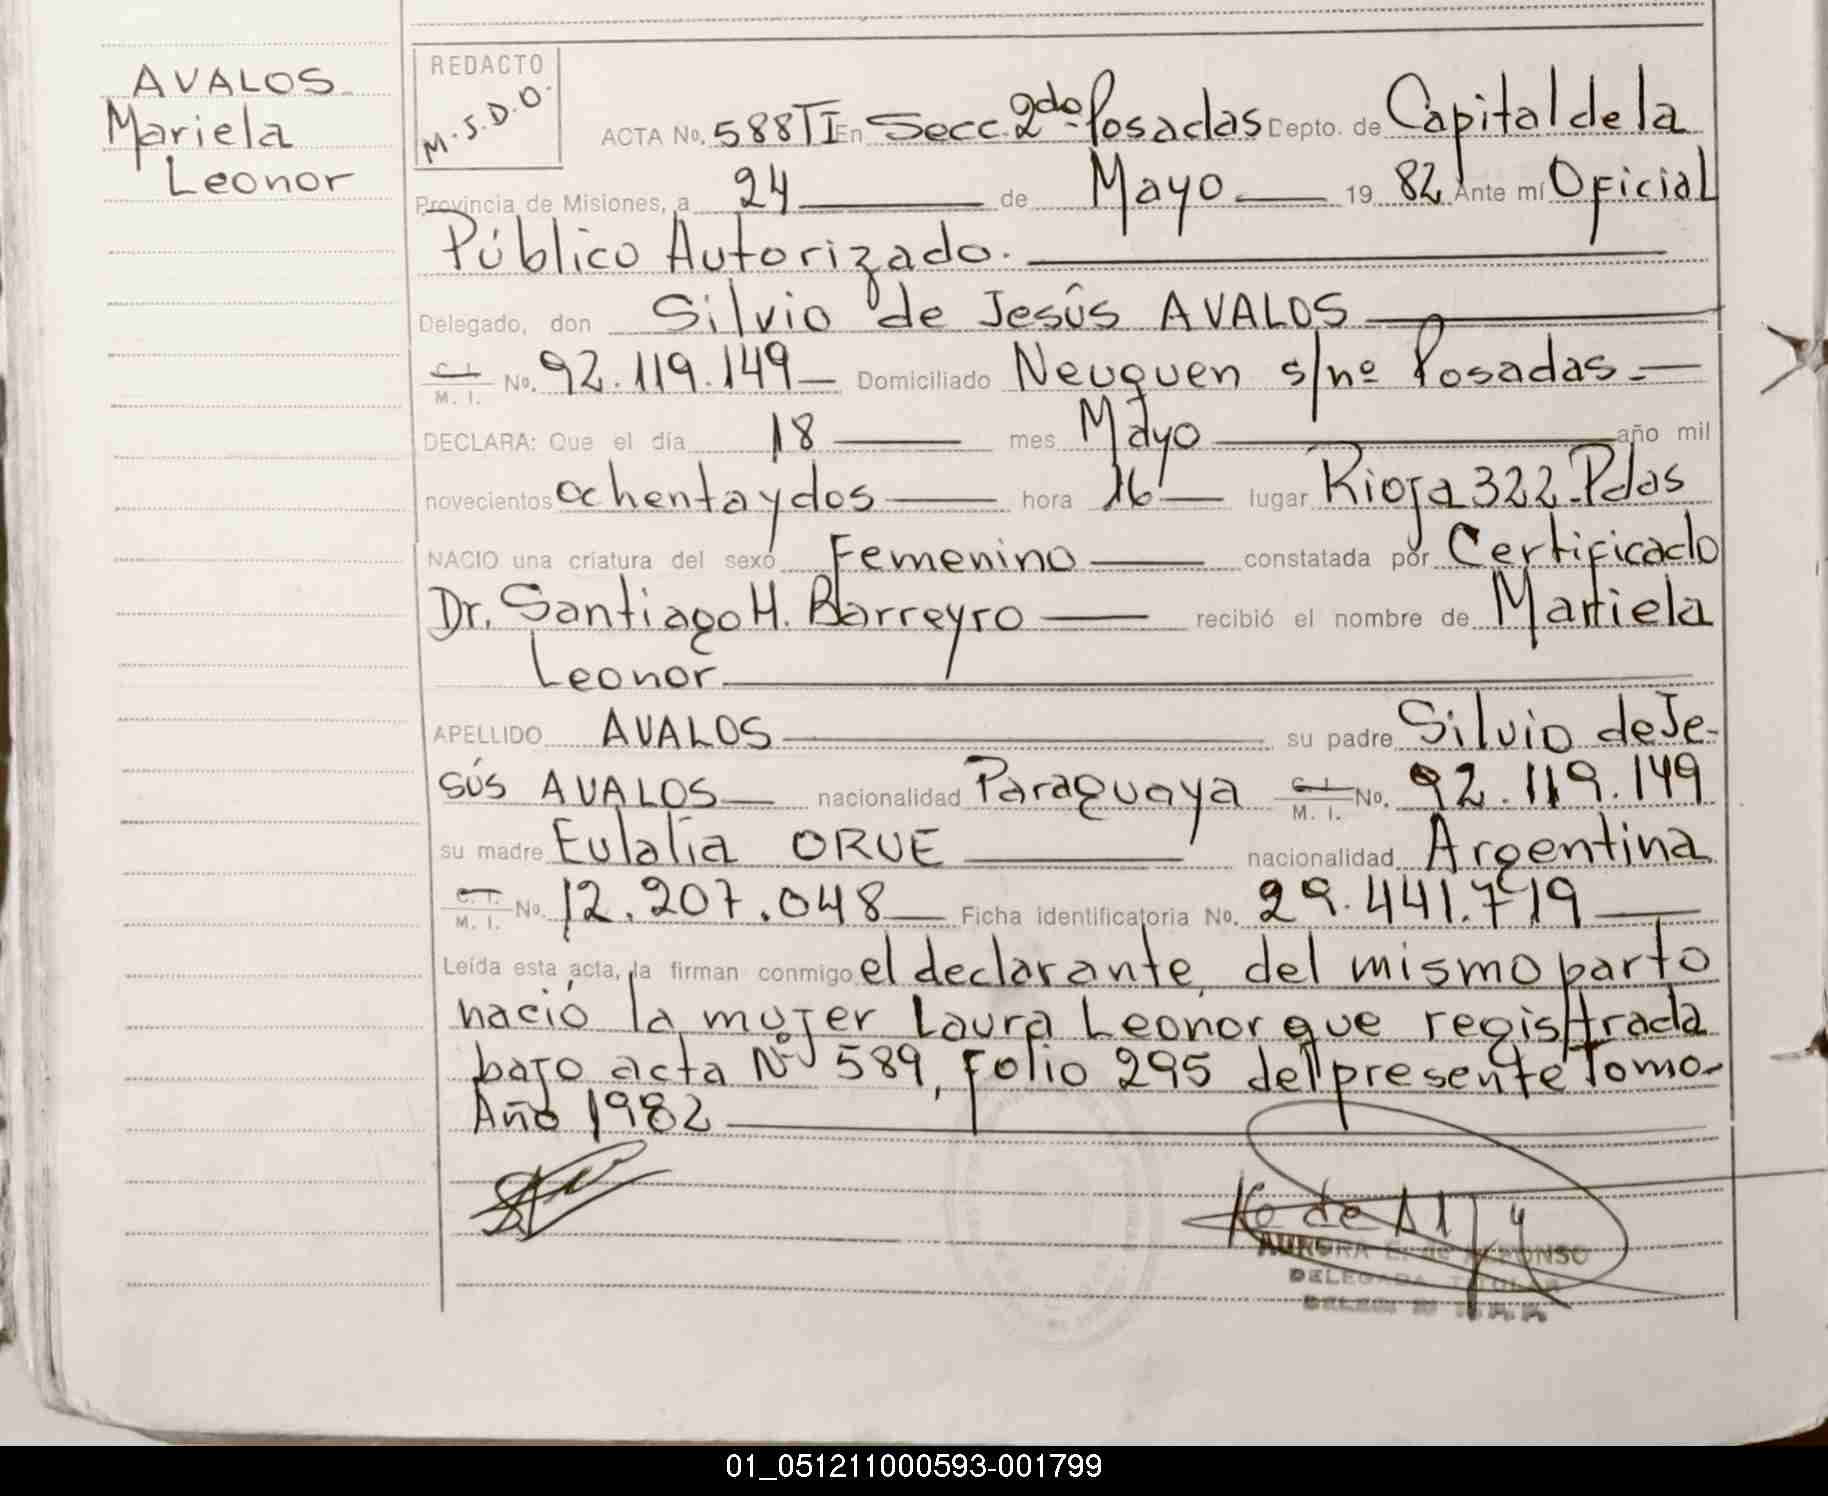 AVALOS
Mariela
Leonor
REDACTO
M.S.D.O.
ACTA No. 588 TI En Secc. 2do. Posadas Depto. de Capital de la
Provincia de Misiones, a 24 de Mayo 19 82 Ante mí Oficial
Público Autorizado.
Delegado, don Silvio de Jesús AVALOS
C. I. M. I. No. 92.119.149 Domiciliado Neuquen s/nº Posadas
DECLARA: Que el día 18 mes Mayo año mil
novecientos ochenta y dos hora 16 lugar Rioja 322 - Pdas
NACIO una criatura del sexo Femenino constatada por Certificado
Dr. Santiago H. Barreyro recibió el nombre de Mariela
Leonor
APELLIDO AVALOS su padre Silvio de Je-
sús AVALOS nacionalidad Paraguaya C. I. M. I. No. 92.119.149
su madre Eulalia ORUE nacionalidad Argentina
C. I. M. I. No. 12.207.048 Ficha identificatoria No. 29.441.719
Leída esta acta, la firman conmigo el declarante, del mismo parto
nació la mujer Laura Leonor que registrada
bajo acta Nº 589, Folio 295 del presente Tomo-
Año 1982
AURORA E. de ALFONSO
DELEGADA TITULAR
01_051211000593-001799